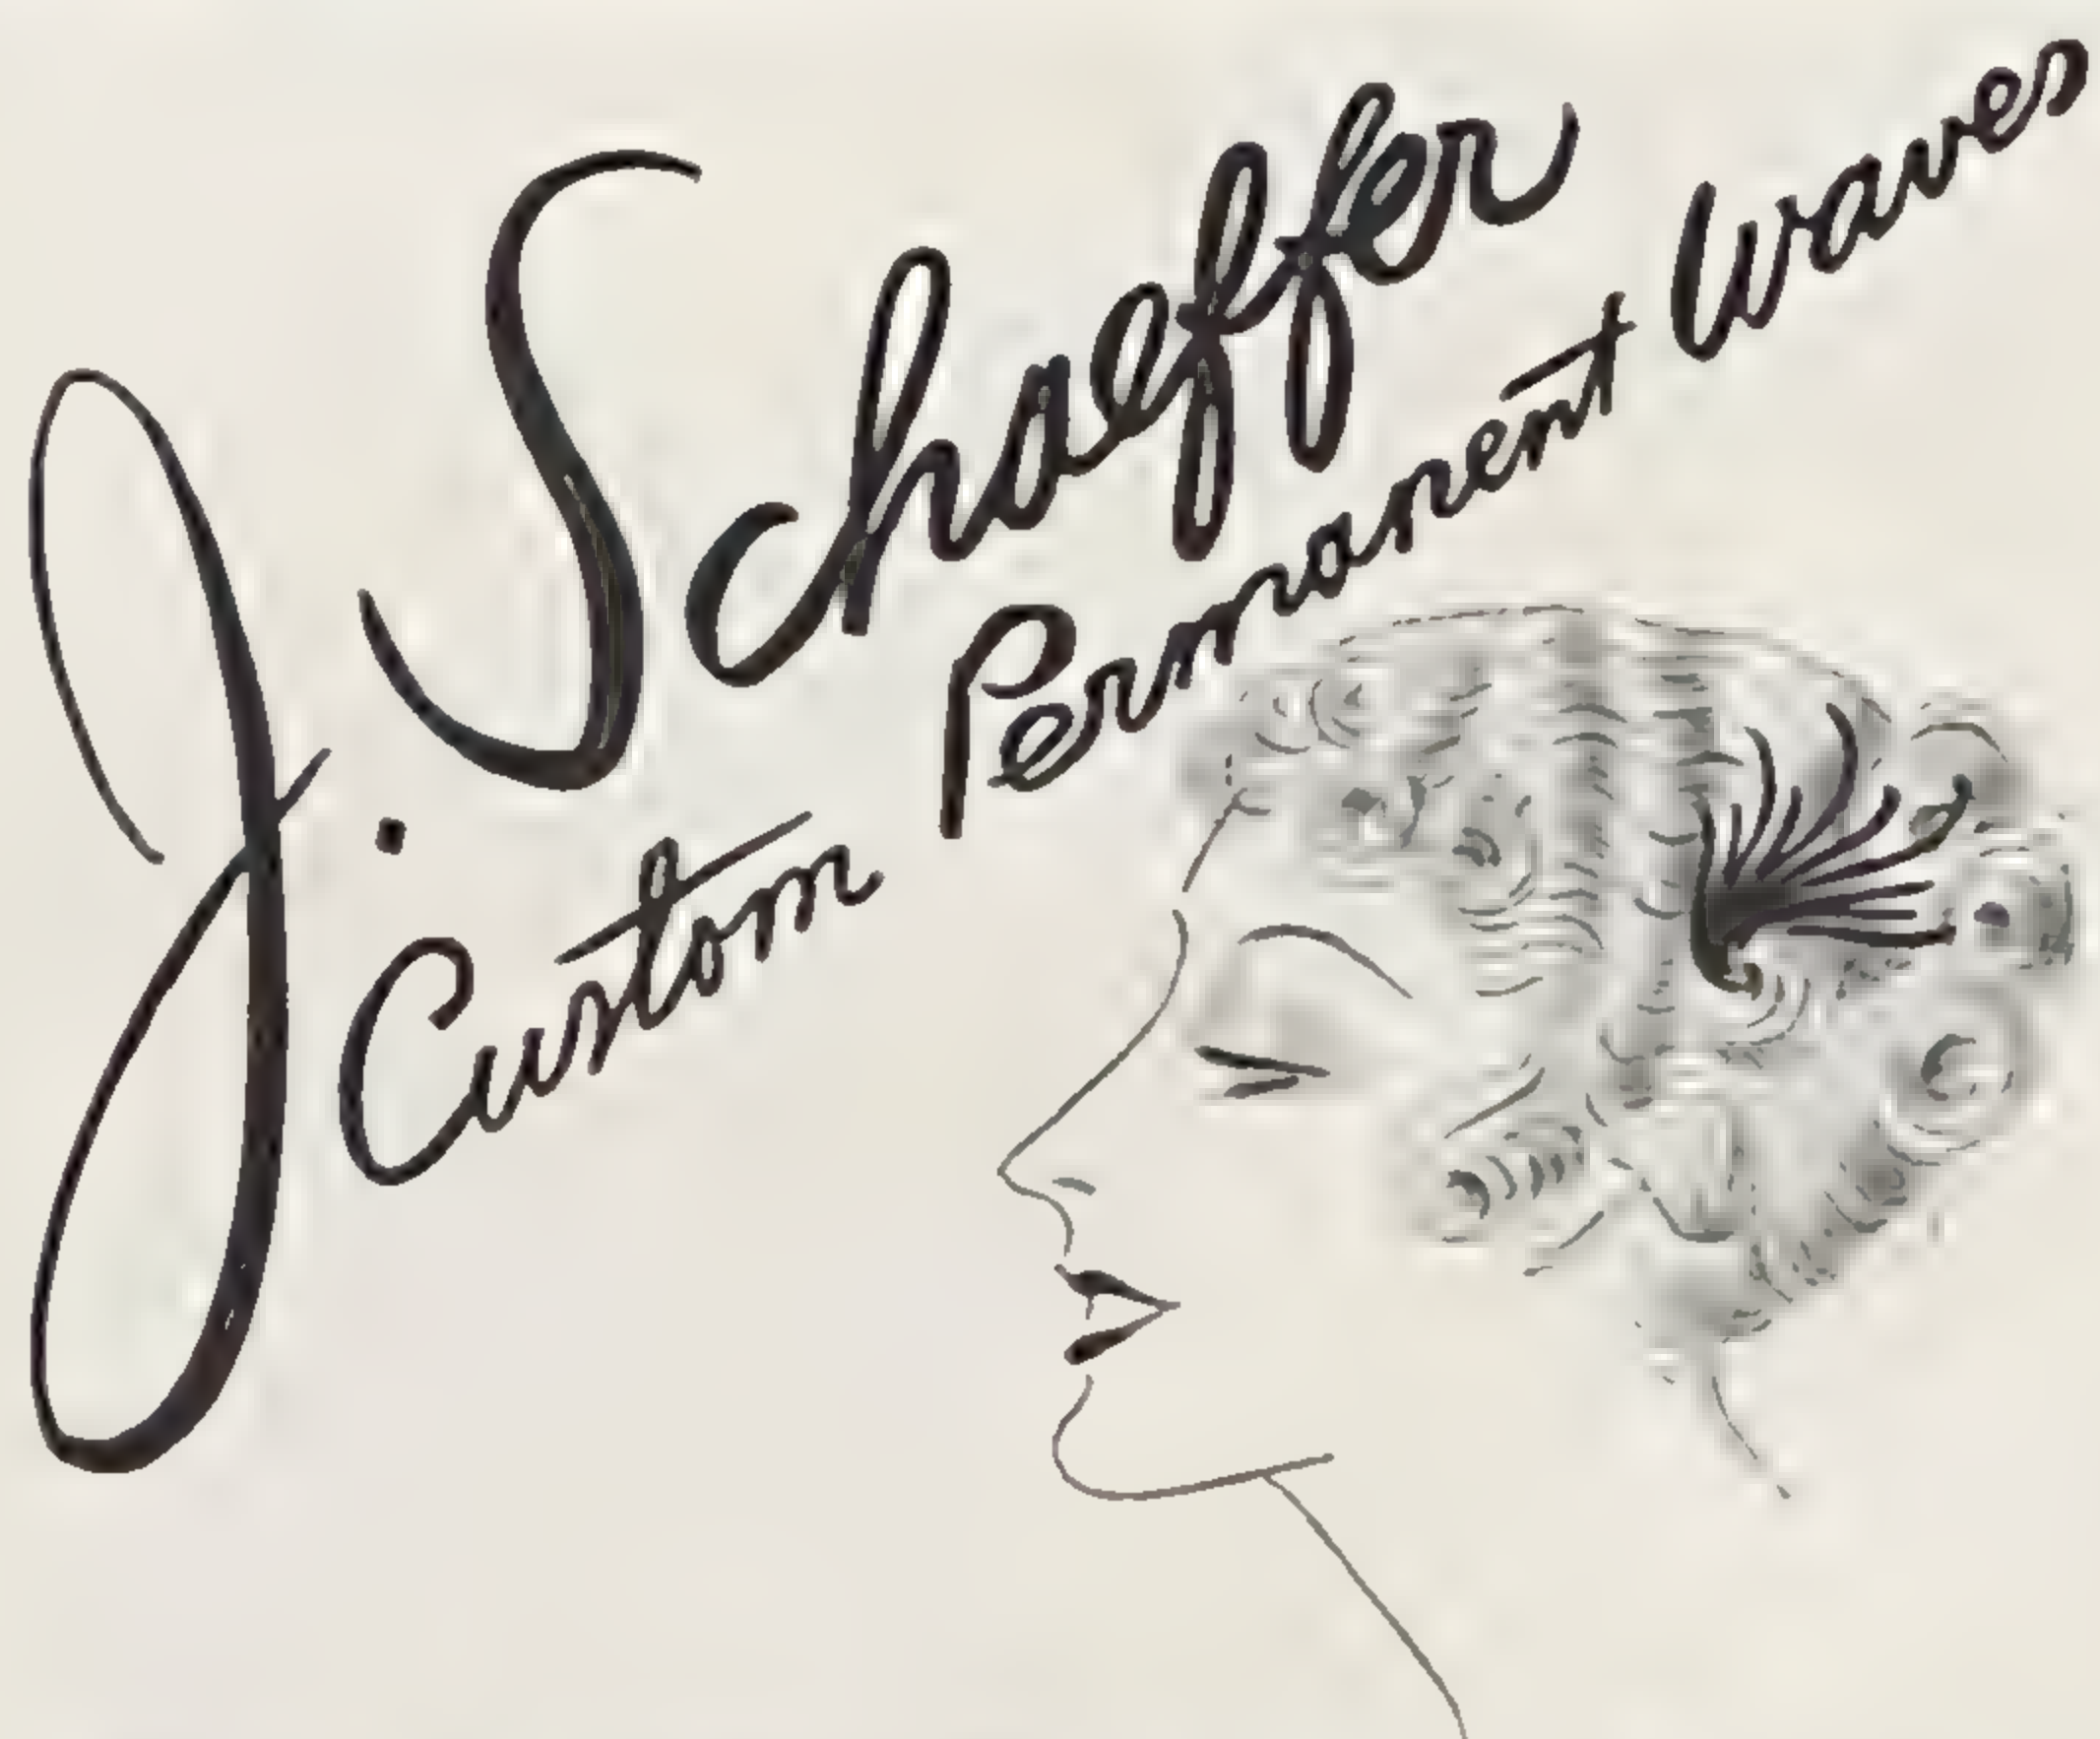 J. Schaeffer
Custom Permanent Waves